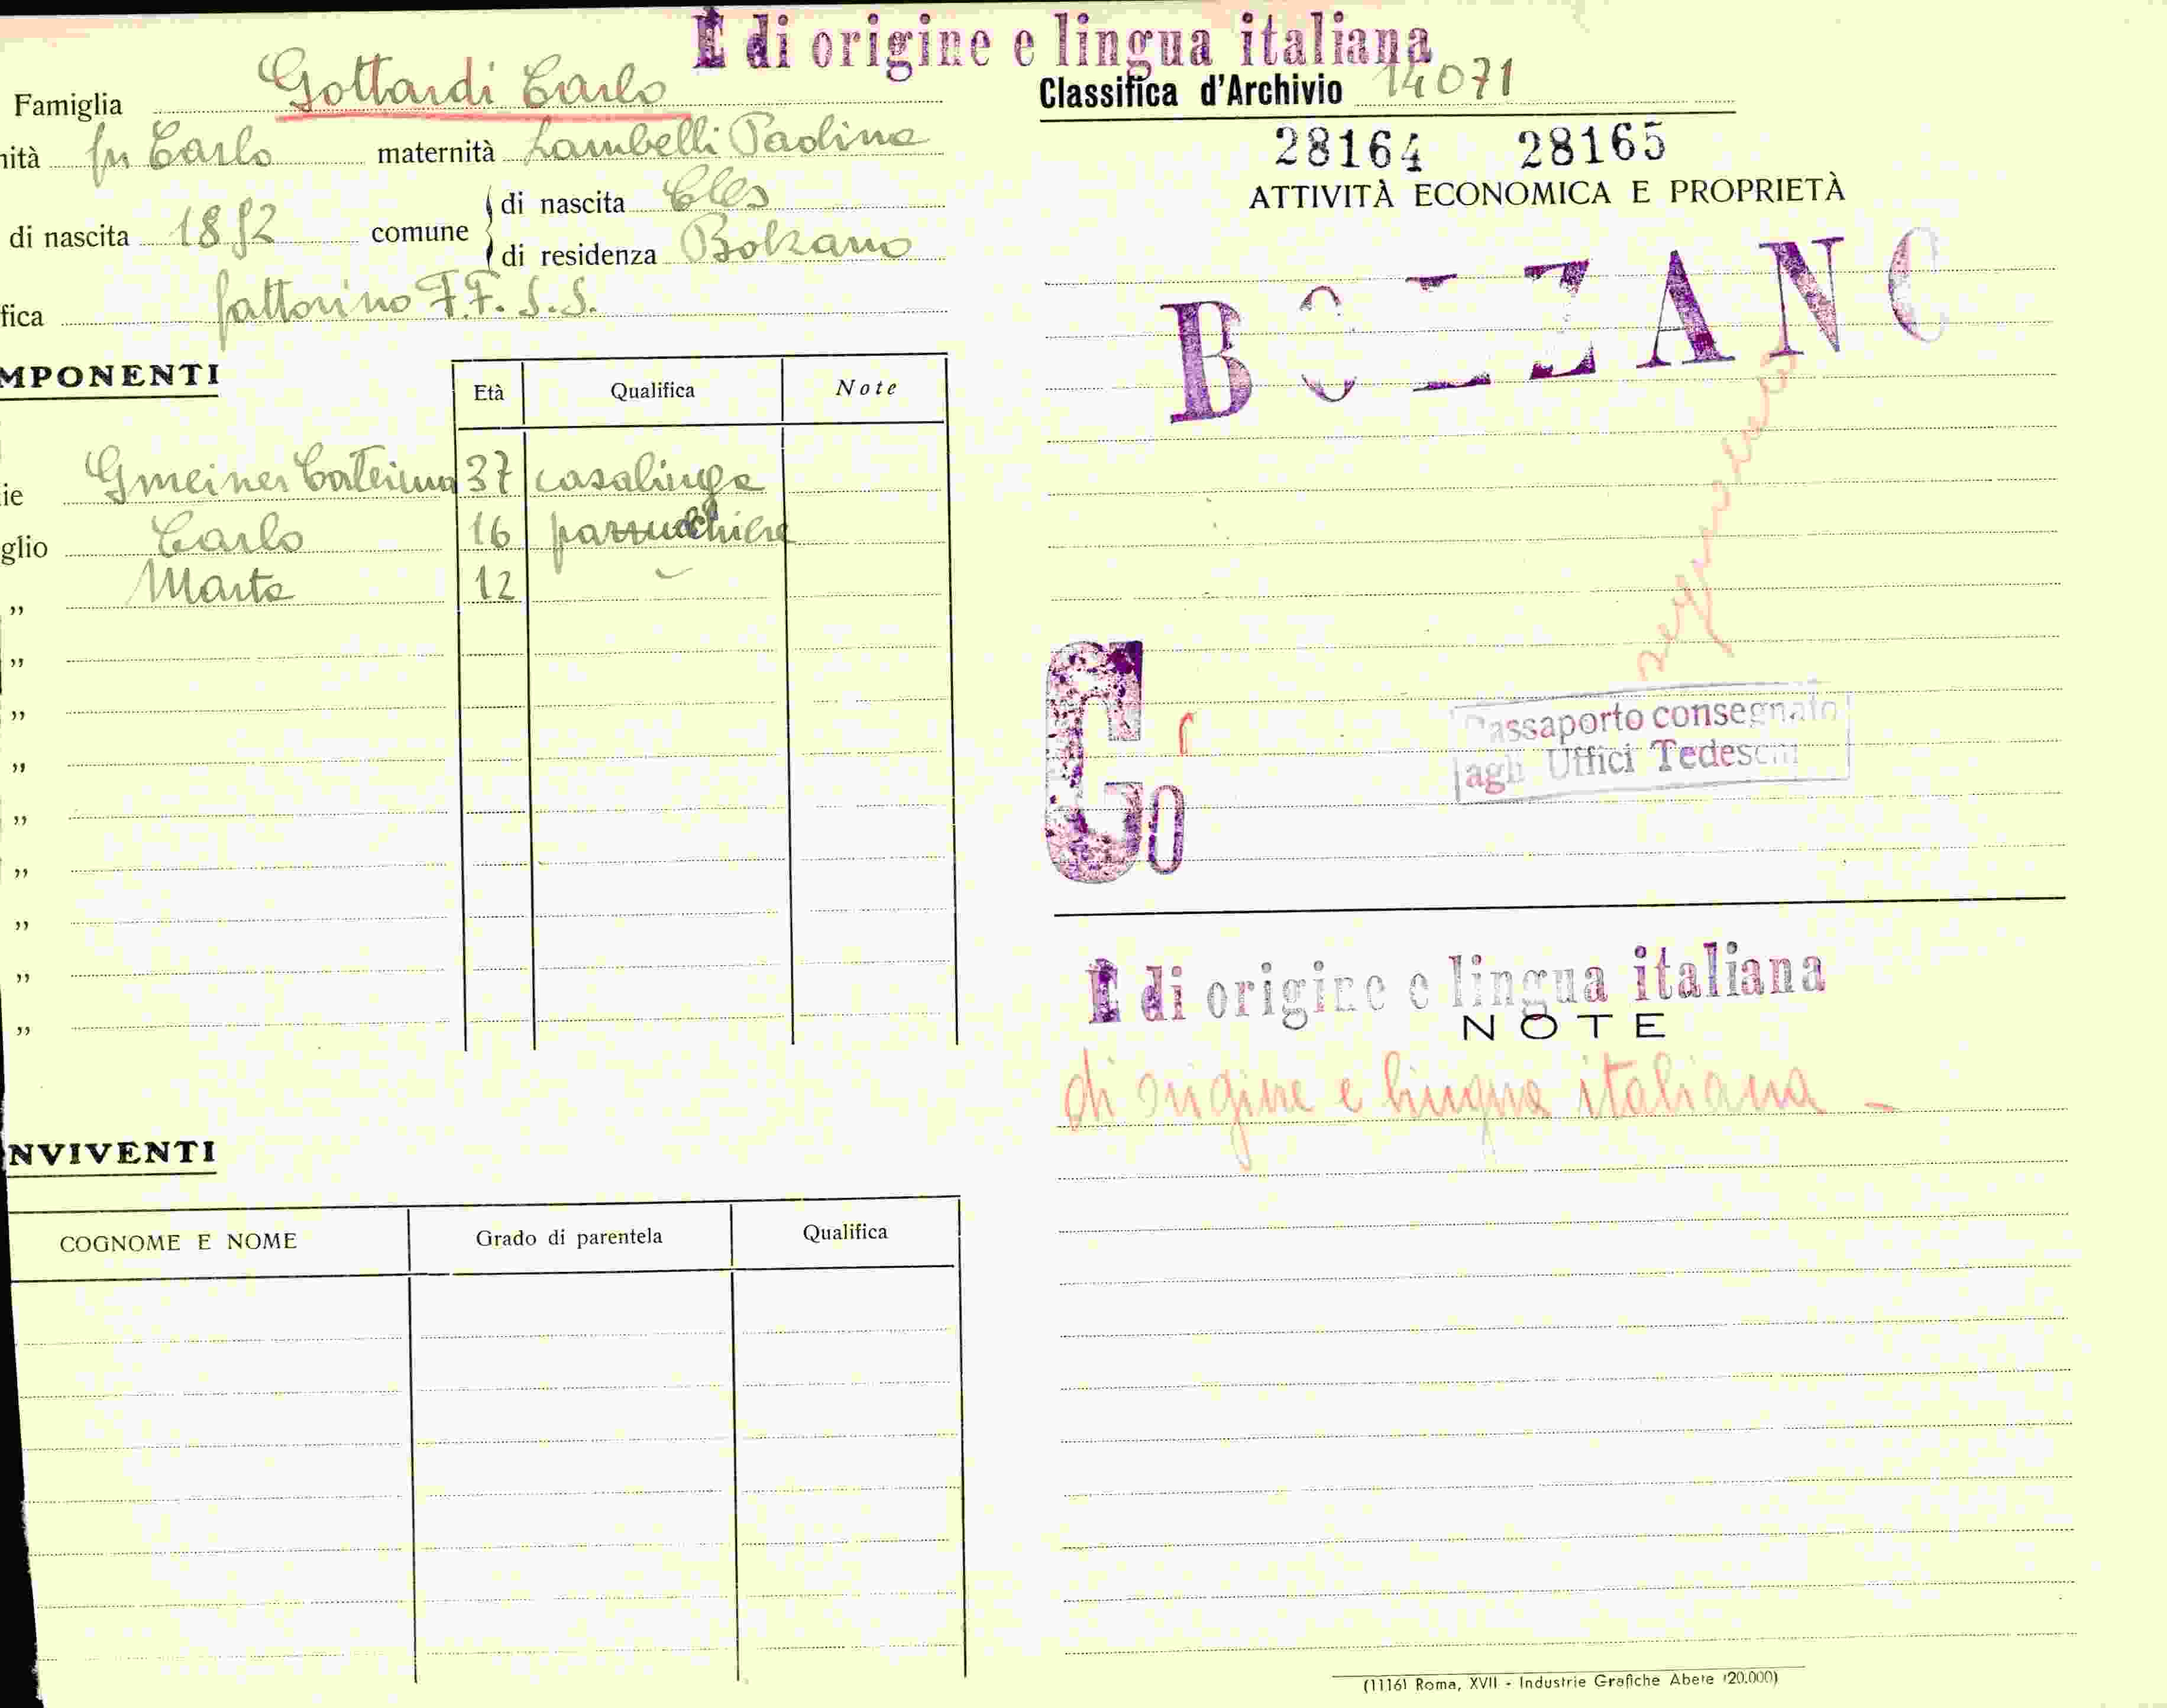 E di origine e lingua italiana
Famiglia Gottardi Carlo
nità fu Carlo maternità Lambelli Paolina
di nascita 1892 comune di nascita Cles
di residenza Bolzano
fica fattorino F.F. S.S.
MPONENTI
Età Qualifica Note
ie Gmeiner Caterina 37 casalinga
glio Carlo 16 parrucchiere
,, Marta 12 -
,,
,,
,,
,,
,,
,,
,,
,,
NVIVENTI
COGNOME E NOME Grado di parentela Qualifica
Classifica d'Archivio 14071
28164 28165
ATTIVITÀ ECONOMICA E PROPRIETÀ
BOLZANO
G
Passaporto consegnato
agli Uffici Tedeschi
E di origine e lingua italiana
NOTE
di origine e lingua italiana -
(1116) Roma, XVII - Industrie Grafiche Abete (20.000)